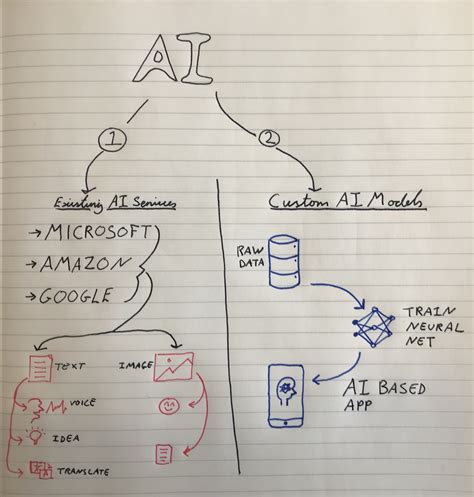 AI
1
2
Existing AI Services
Custom AI Models
→ MICROSOFT
→ AMAZON
→ GOOGLE
RAW
DATA
TRAIN
NEURAL
NET
TEXT
IMAGE
VOICE
IDEA
TRANSLATE
AI BASED
APP